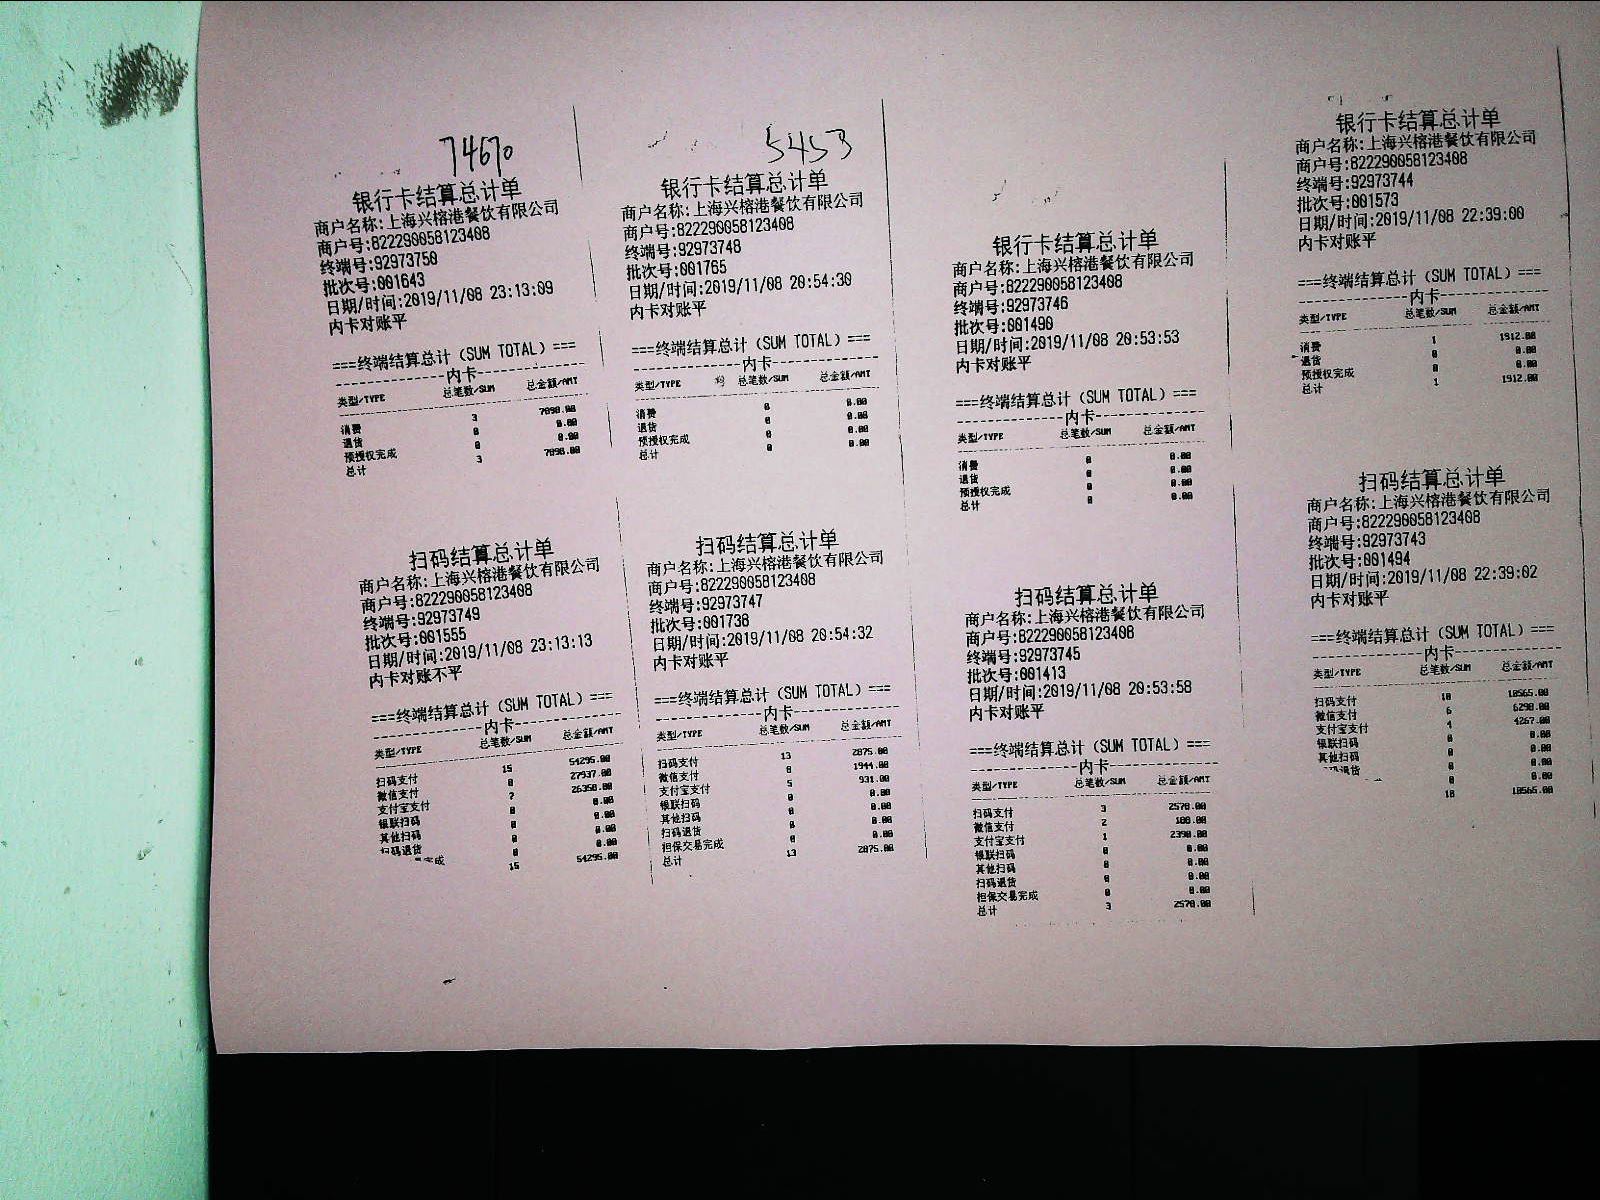 74670
银行卡结算总计单
商户名称:上海兴榕港餐饮有限公司
商户号:822290058123408
终端号:92973750
批次号:001643
日期/时间:2019/11/08 23:13:09
内卡对账平
===终端结算总计(SUM TOTAL)===
内卡
类型/TYPE 总笔数/SUM 总金额/AMT
消费 3 7898.00
退货 0 0.00
预授权完成 0 0.00
总计 3 7898.00
扫码结算总计单
商户名称:上海兴榕港餐饮有限公司
商户号:822290058123408
终端号:92973749
批次号:001555
日期/时间:2019/11/08 23:13:13
内卡对账不平
===终端结算总计(SUM TOTAL)===
内卡
类型/TYPE 总笔数/SUM 总金额/AMT
扫码支付 15 54295.00
微信支付 8 27937.00
支付宝支付 7 26358.00
银联扫码 0 0.00
其他扫码 0 0.00
扫码退货 0 0.00
完成 0 0.00
15 54295.00
5453
银行卡结算总计单
商户名称:上海兴榕港餐饮有限公司
商户号:822290058123408
终端号:92973748
批次号:001765
日期/时间:2019/11/08 20:54:30
内卡对账平
===终端结算总计(SUM TOTAL)===
内卡
类型/TYPE 总笔数/SUM 总金额/AMT
消费 0 0.00
退货 0 0.00
预授权完成 0 0.00
总计 0 0.00
扫码结算总计单
商户名称:上海兴榕港餐饮有限公司
商户号:822290058123408
终端号:92973747
批次号:001738
日期/时间:2019/11/08 20:54:32
内卡对账平
===终端结算总计(SUM TOTAL)===
内卡
类型/TYPE 总笔数/SUM 总金额/AMT
扫码支付 13 2875.00
微信支付 8 1944.00
支付宝支付 5 931.00
银联扫码 0 0.00
其他扫码 0 0.00
扫码退货 0 0.00
担保交易完成 0 0.00
总计 13 2875.00
银行卡结算总计单
商户名称:上海兴榕港餐饮有限公司
商户号:822290058123408
终端号:92973746
批次号:001490
日期/时间:2019/11/08 20:53:53
内卡对账平
===终端结算总计(SUM TOTAL)===
内卡
类型/TYPE 总笔数/SUM 总金额/AMT
消费 0 0.00
退货 0 0.00
预授权完成 0 0.00
总计 0 0.00
扫码结算总计单
商户名称:上海兴榕港餐饮有限公司
商户号:822290058123408
终端号:92973745
批次号:001413
日期/时间:2019/11/08 20:53:58
内卡对账平
===终端结算总计(SUM TOTAL)===
内卡
类型/TYPE 总笔数/SUM 总金额/AMT
扫码支付 3 2578.00
微信支付 2 188.00
支付宝支付 1 2390.00
银联扫码 0 0.00
其他扫码 0 0.00
扫码退货 0 0.00
担保交易完成 0 0.00
总计 3 2578.00
银行卡结算总计单
商户名称:上海兴榕港餐饮有限公司
商户号:822290058123408
终端号:92973744
批次号:001573
日期/时间:2019/11/08 22:39:00
内卡对账平
===终端结算总计(SUM TOTAL)===
内卡
类型/TYPE 总笔数/SUM 总金额/AMT
消费 1 1912.00
退货 0 0.00
预授权完成 0 0.00
总计 1 1912.00
扫码结算总计单
商户名称:上海兴榕港餐饮有限公司
商户号:822290058123408
终端号:92973743
批次号:001494
日期/时间:2019/11/08 22:39:02
内卡对账平
===终端结算总计(SUM TOTAL)===
内卡
类型/TYPE 总笔数/SUM 总金额/AMT
扫码支付 10 10565.00
微信支付 6 6298.00
支付宝支付 4 4267.00
银联扫码 0 0.00
其他扫码 0 0.00
码退货 0 0.00
0 0.00
10 10565.00